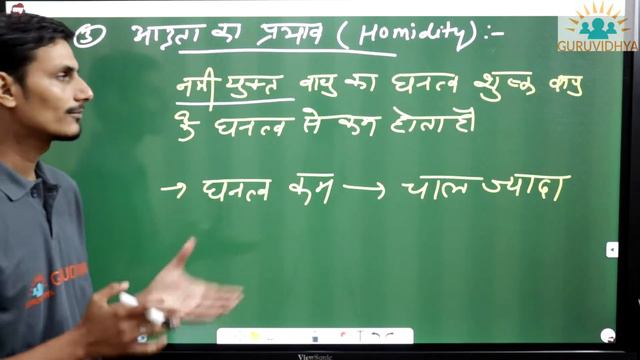 ③ आद्रता का प्रभाव (Homidity) :-
नमी युक्त वायु का घनत्व शुष्क वायु
के घनत्व से कम होता है
→ घनत्व कम → चाल ज्यादा
GURUVIDHYA
ViewSonic